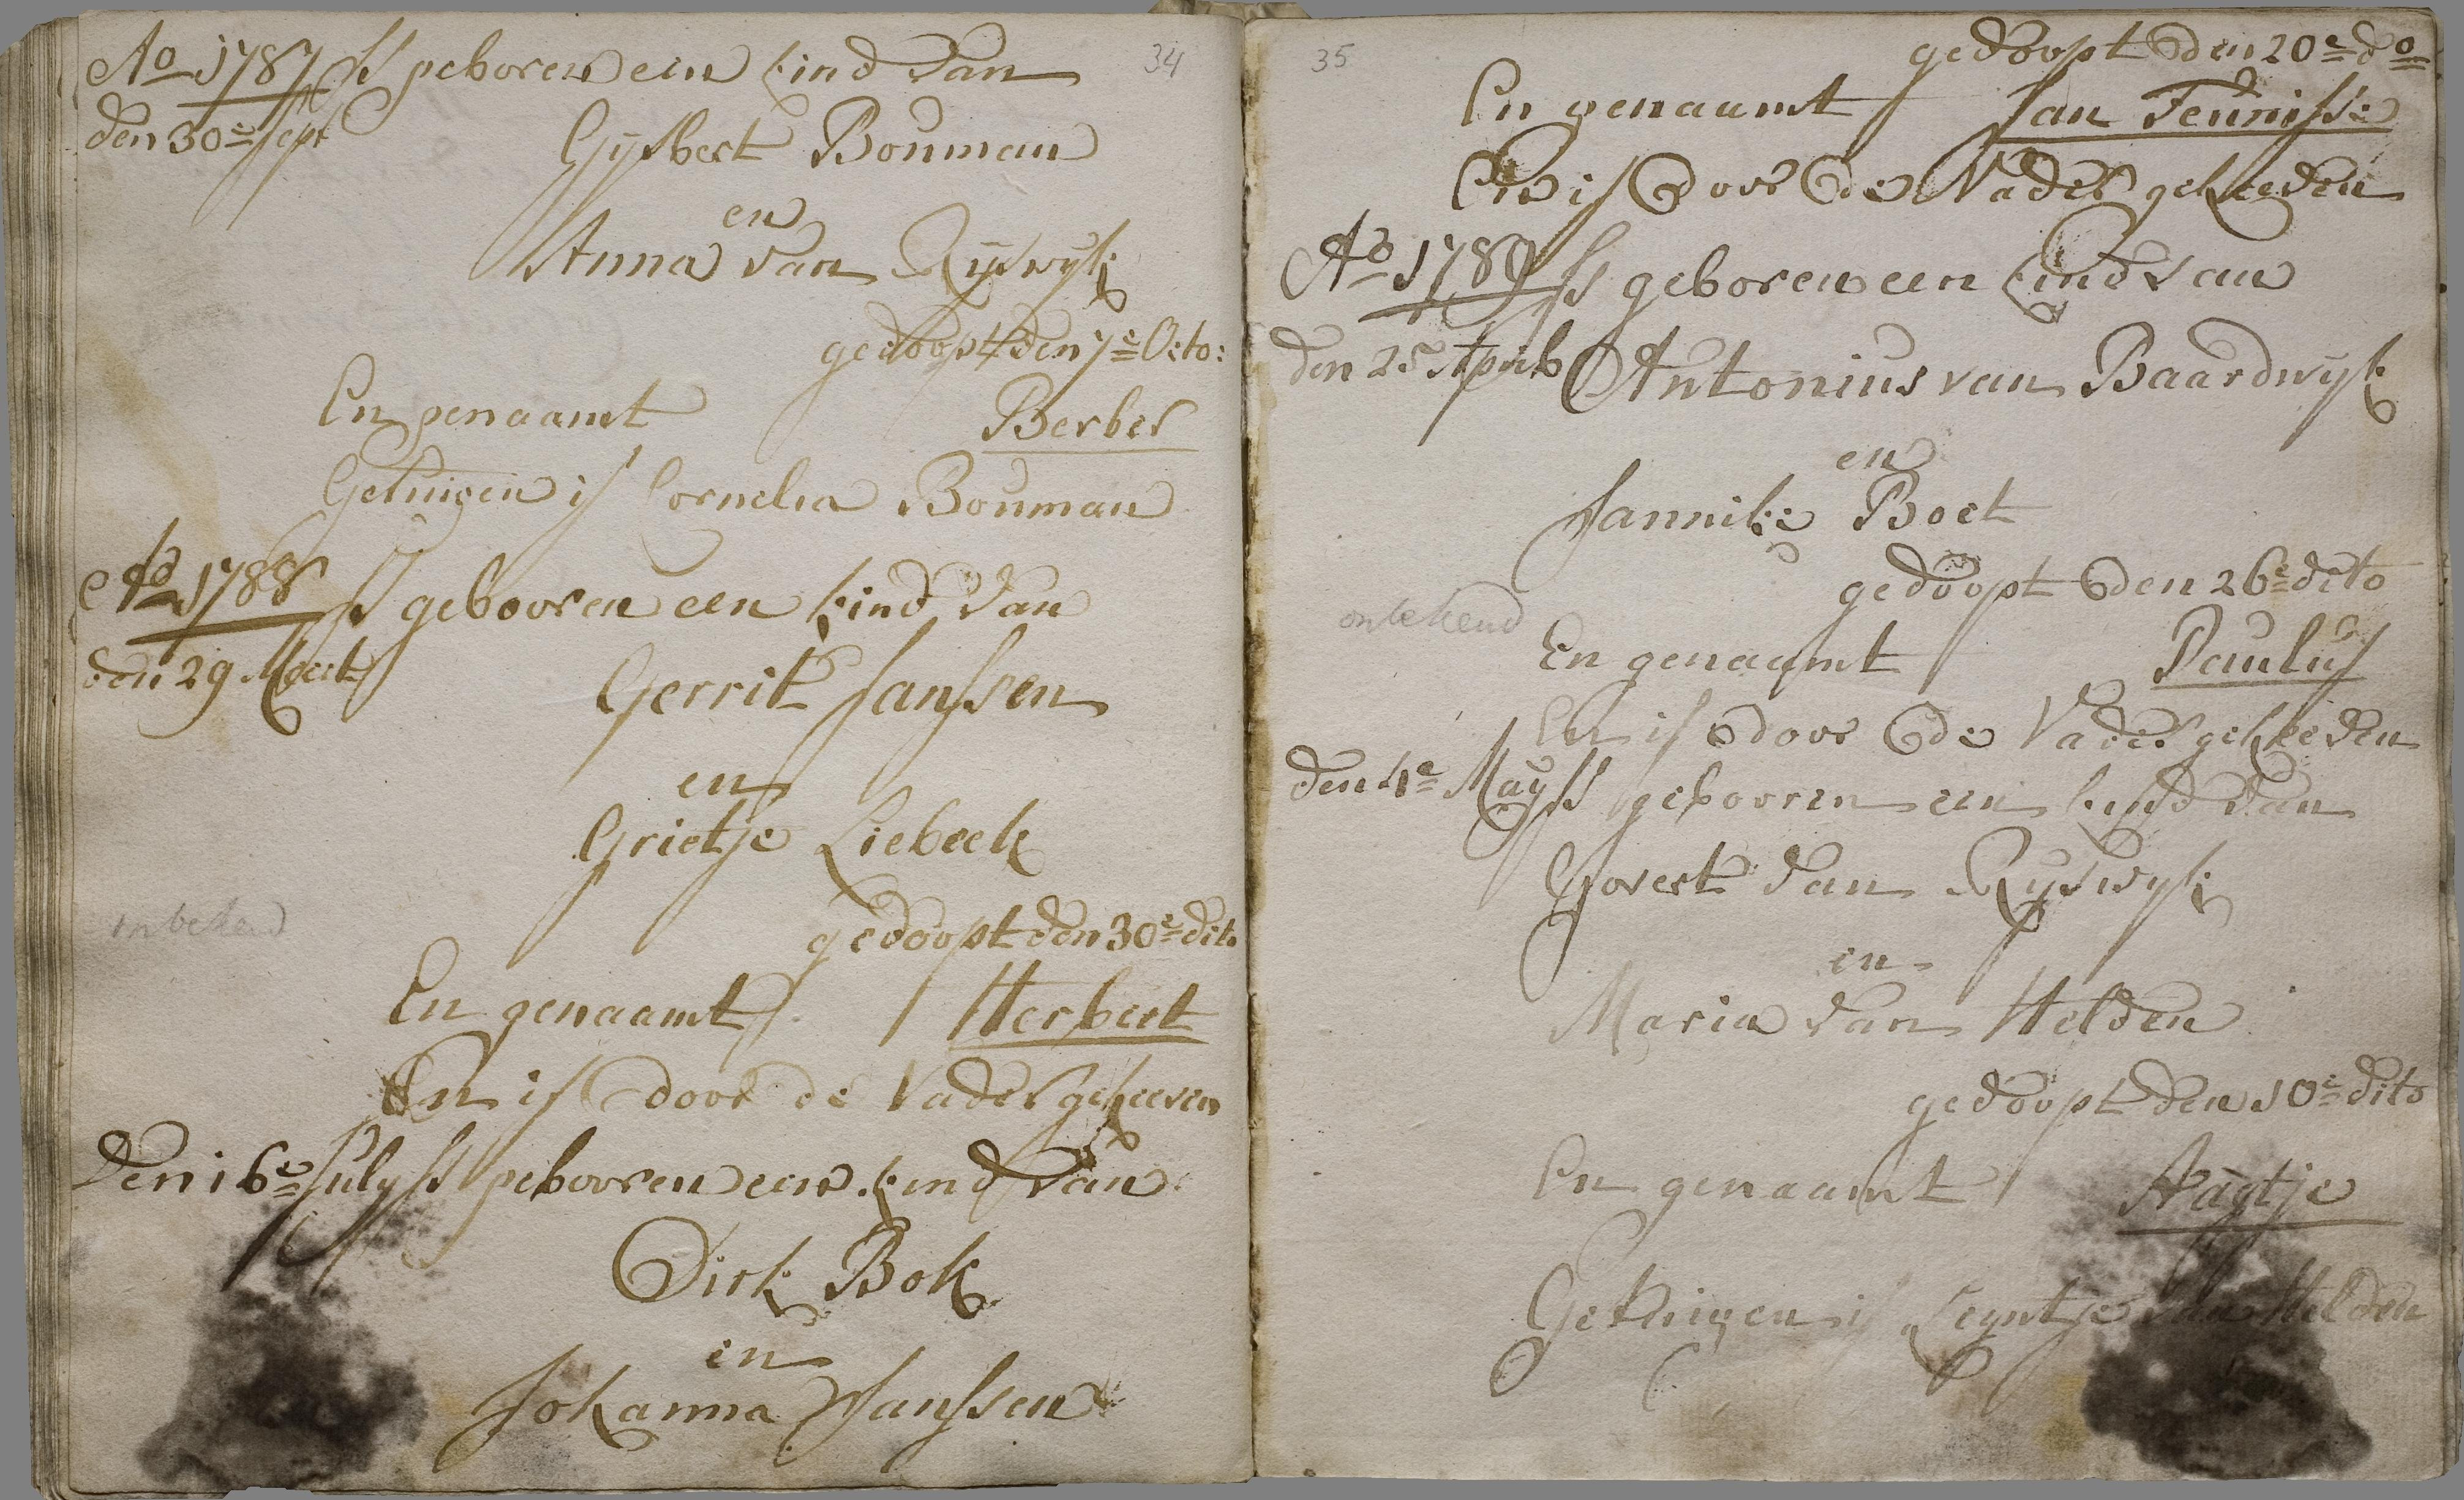 34
Ao 1787 Is geboren een kind van
den 30e Sept
Gijsbert Bouman
en
Anna van Rijswijk
gedoopt den 7e Octo:
En genaamt Berber
Getuigen is Cornelia Bouman
Ao 1788 Is gebooren een kind van
den 29 Meert
Gerrit Janssen
en
Grietje Liebeek
onbekend
gedoopt den 30e dito
En genaamt Herbert
En is door de Vader geheeven
Den 16e July Is gebooren een kind van
Dirk Bok
en
Johanna Janssen
35
gedoopt den 20e do
En genaamt Jan Teunisse
En is door de Vader geheeven
Ao 1789 Is geboren een kind van
den 25 April Antonius van Baardwijk
en
Jannike Boet
gedoopt den 26e dito
onbekend
En genaamt Paulus
En is door de Vader geheeven
den 4e May Is gebooren een kind van
Govert van Rijswijk
en
Maria van Helden
gedoopt den 10e dito
En genaamt Aagtje
Getuigen is Leyntje van Helden